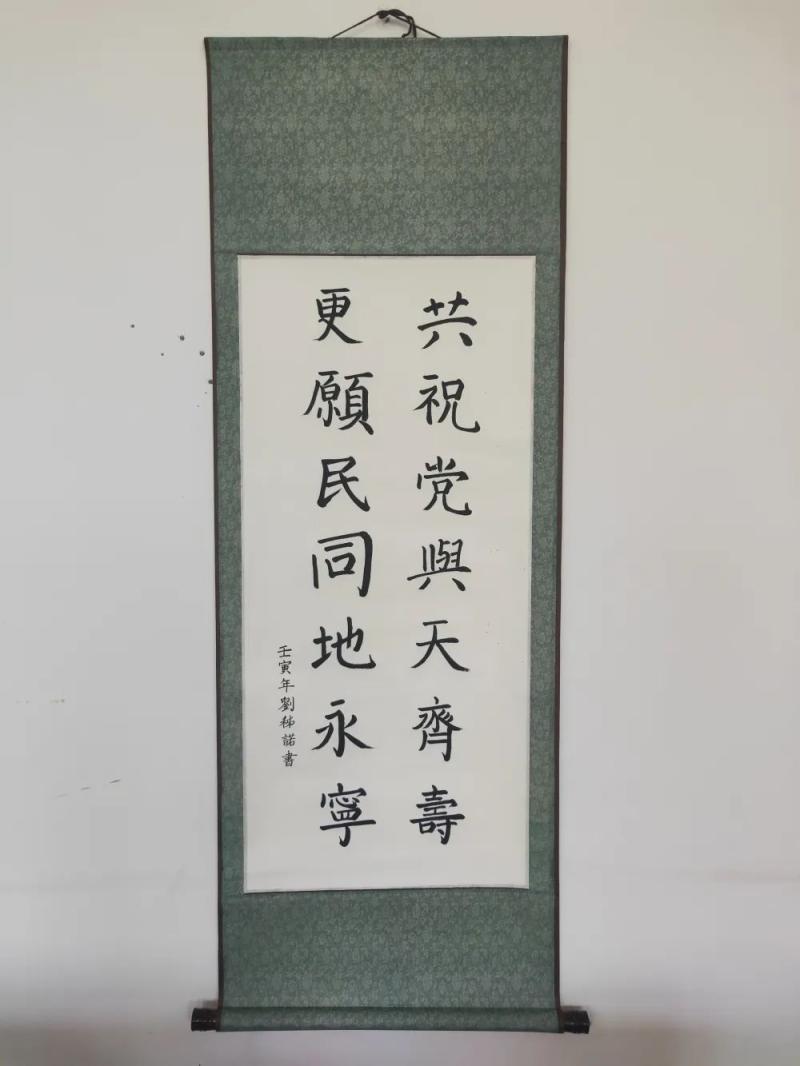 共祝党與天齊壽
更願民同地永寧
壬寅年劉秭諾書